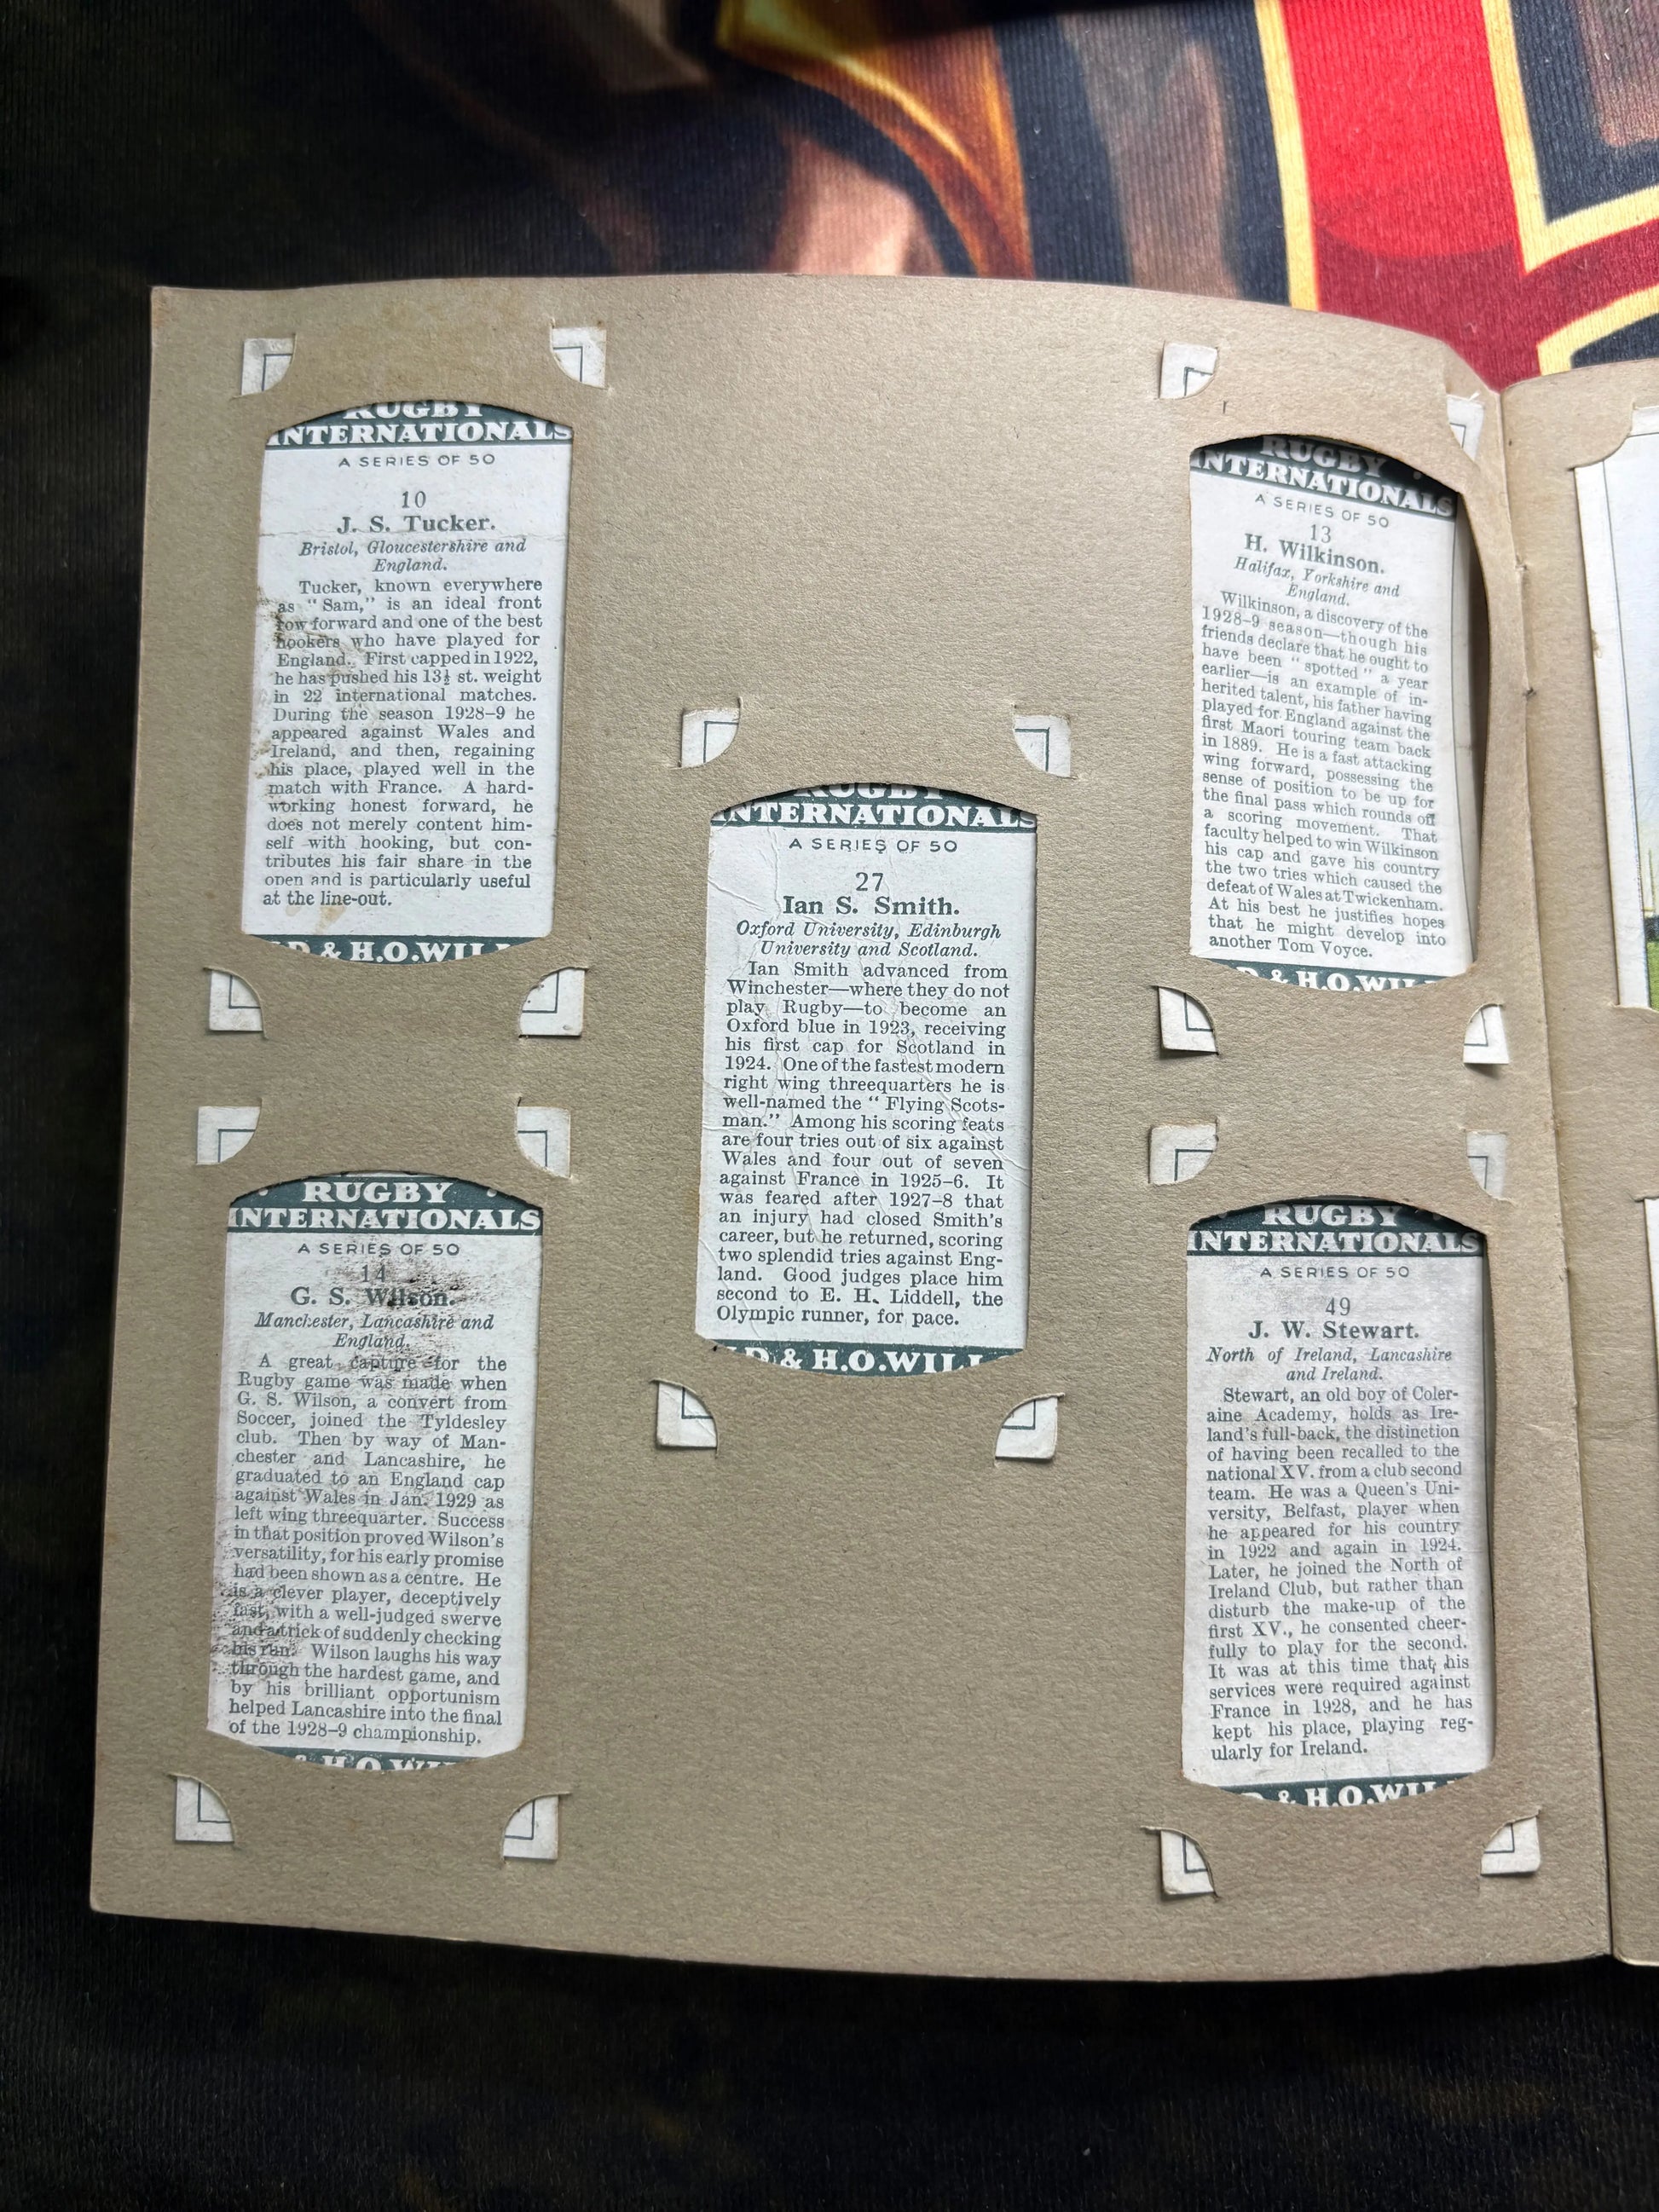 RUGBY
INTERNATIONALS
A SERIES OF 50
10
J. S. Tucker.
Bristol, Gloucestershire and
England.
Tucker, known everywhere
as "Sam," is an ideal front
row forward and one of the best
hookers who have played for
England. First capped in 1922,
he has pushed his 13½ st. weight
in 22 international matches.
During the season 1928-9 he
appeared against Wales and
Ireland, and then, regaining
his place, played well in the
match with France. A hard-
working honest forward, he
does not merely content him-
self with hooking, but con-
tributes his fair share in the
open and is particularly useful
at the line-out.
D & H.O.WILL
RUGBY
INTERNATIONALS
A SERIES OF 50
14
G. S. Wilson.
Manchester, Lancashire and
England.
A great capture for the
Rugby game was made when
G. S. Wilson, a convert from
Soccer, joined the Tyldesley
club. Then by way of Man-
chester and Lancashire, he
graduated to an England cap
against Wales in Jan. 1929 as
left wing threequarter. Success
in that position proved Wilson's
versatility, for his early promise
had been shown as a centre. He
is a clever player, deceptively
fast, with a well-judged swerve
and a trick of suddenly checking
his run. Wilson laughs his way
through the hardest game, and
by his brilliant opportunism
helped Lancashire into the final
of the 1928-9 championship.
& H.O.WI
RUGBY
INTERNATIONALS
A SERIES OF 50
27
Ian S. Smith.
Oxford University, Edinburgh
University and Scotland.
Ian Smith advanced from
Winchester—where they do not
play Rugby—to become an
Oxford blue in 1923, receiving
his first cap for Scotland in
1924. One of the fastest modern
right wing threequarters he is
well-named the "Flying Scots-
man." Among his scoring feats
are four tries out of six against
Wales and four out of seven
against France in 1925-6. It
was feared after 1927-8 that
an injury had closed Smith's
career, but he returned, scoring
two splendid tries against Eng-
land. Good judges place him
second to E. H. Liddell, the
Olympic runner, for pace.
D & H.O.WILL
RUGBY
INTERNATIONALS
A SERIES OF 50
13
H. Wilkinson.
Halifax, Yorkshire and
England.
Wilkinson, a discovery of the
1928-9 season—though his
friends declare that he ought to
have been "spotted" a year
earlier—is an example of in-
herited talent, his father having
played for England against the
first Maori touring team back
in 1889. He is a fast attacking
wing forward, possessing the
sense of position to be up for
the final pass which rounds off
a scoring movement. That
faculty helped to win Wilkinson
his cap and gave his country
the two tries which caused the
defeat of Wales at Twickenham.
At his best he justifies hopes
that he might develop into
another Tom Voyce.
D & H.O.WIL
RUGBY
INTERNATIONALS
A SERIES OF 50
49
J. W. Stewart.
North of Ireland, Lancashire
and Ireland.
Stewart, an old boy of Coler-
aine Academy, holds as Ire-
land's full-back, the distinction
of having been recalled to the
national XV. from a club second
team. He was a Queen's Uni-
versity, Belfast, player when
he appeared for his country
in 1922 and again in 1924.
Later, he joined the North of
Ireland Club, but rather than
disturb the make-up of the
first XV., he consented cheer-
fully to play for the second.
It was at this time that his
services were required against
France in 1928, and he has
kept his place, playing reg-
ularly for Ireland.
D & H.O.WILL